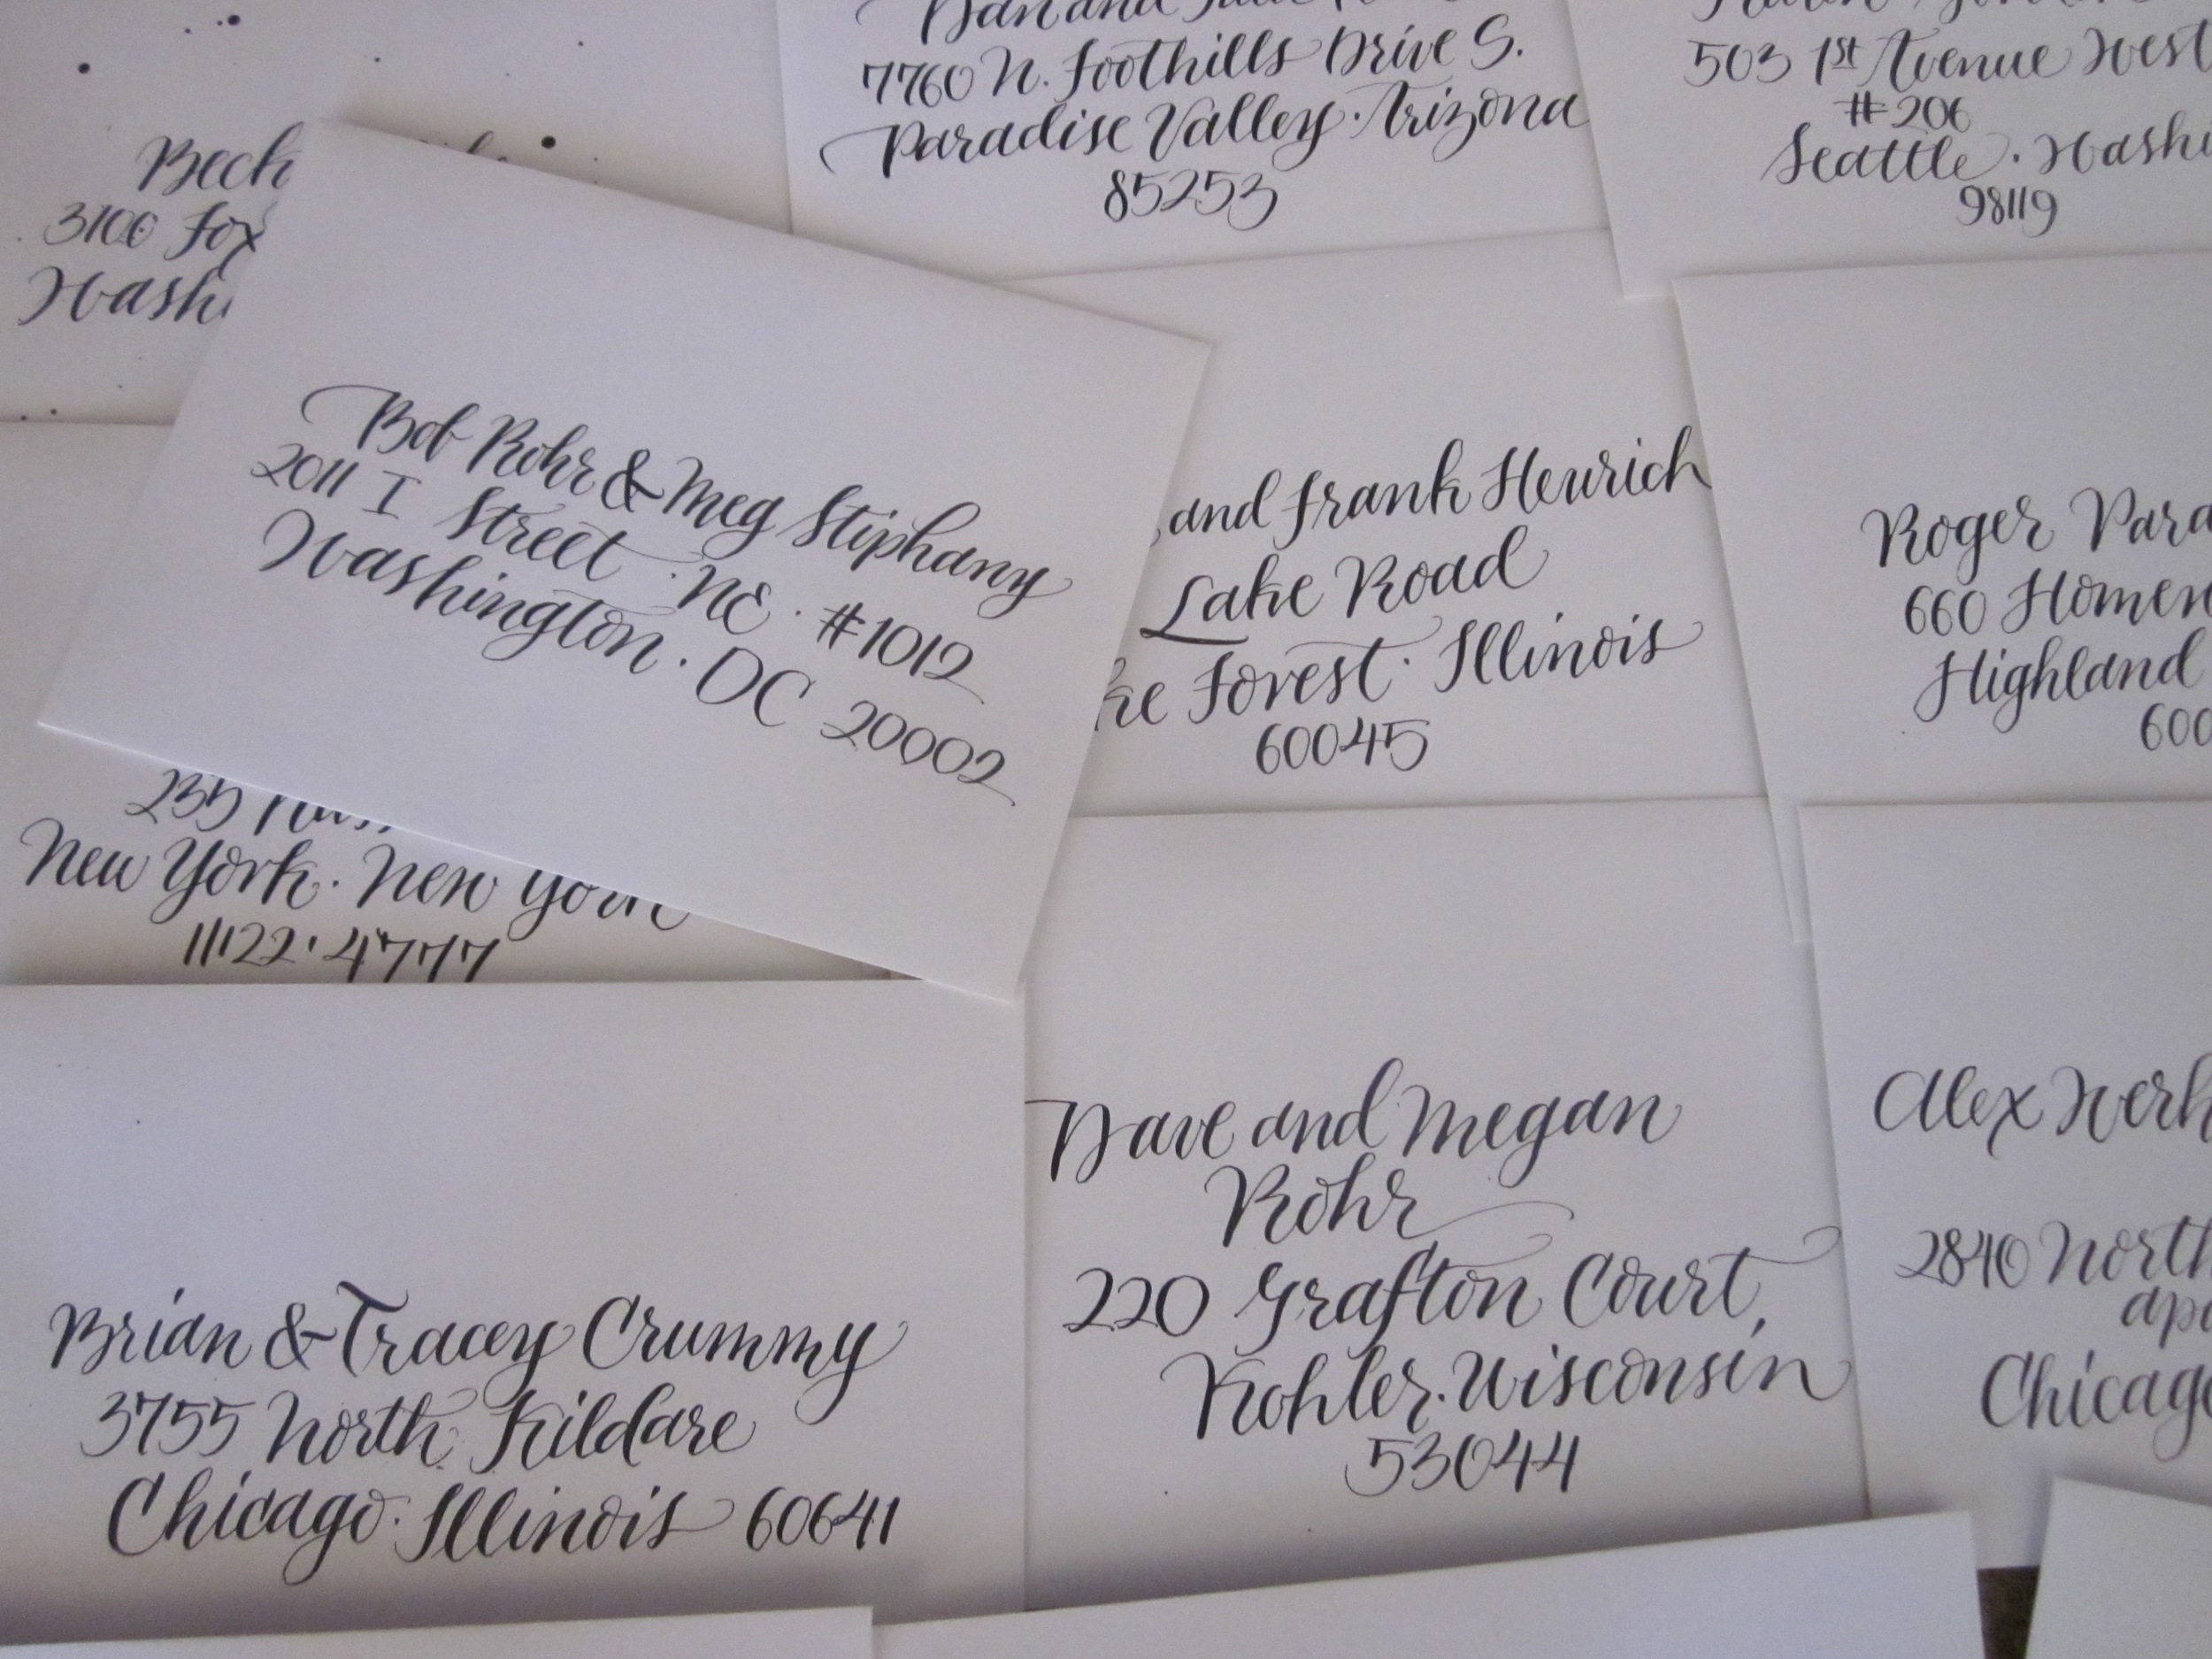 Beck
3106 Fox
7760 N. Foothills Drive S.
Paradise Valley · Arizona
85253
503 1st Avenue West
#206
Seattle ·
98119
Bob Rohr & Meg Stiphany
2011 I Street · NE · #1012
Washington · DC 20002
and Frank Heurich
Lake Road
Forest · Illinois
60045
Roger
660
Highland
235
New York · New York
11122 · 4777
Brian & Tracey Crummy
3755 North Kildare
Chicago · Illinois 60641
Dave and Megan
Rohr
220 Grafton Court,
Kohler · Wisconsin
53044
Alex
2840 North
Chicago